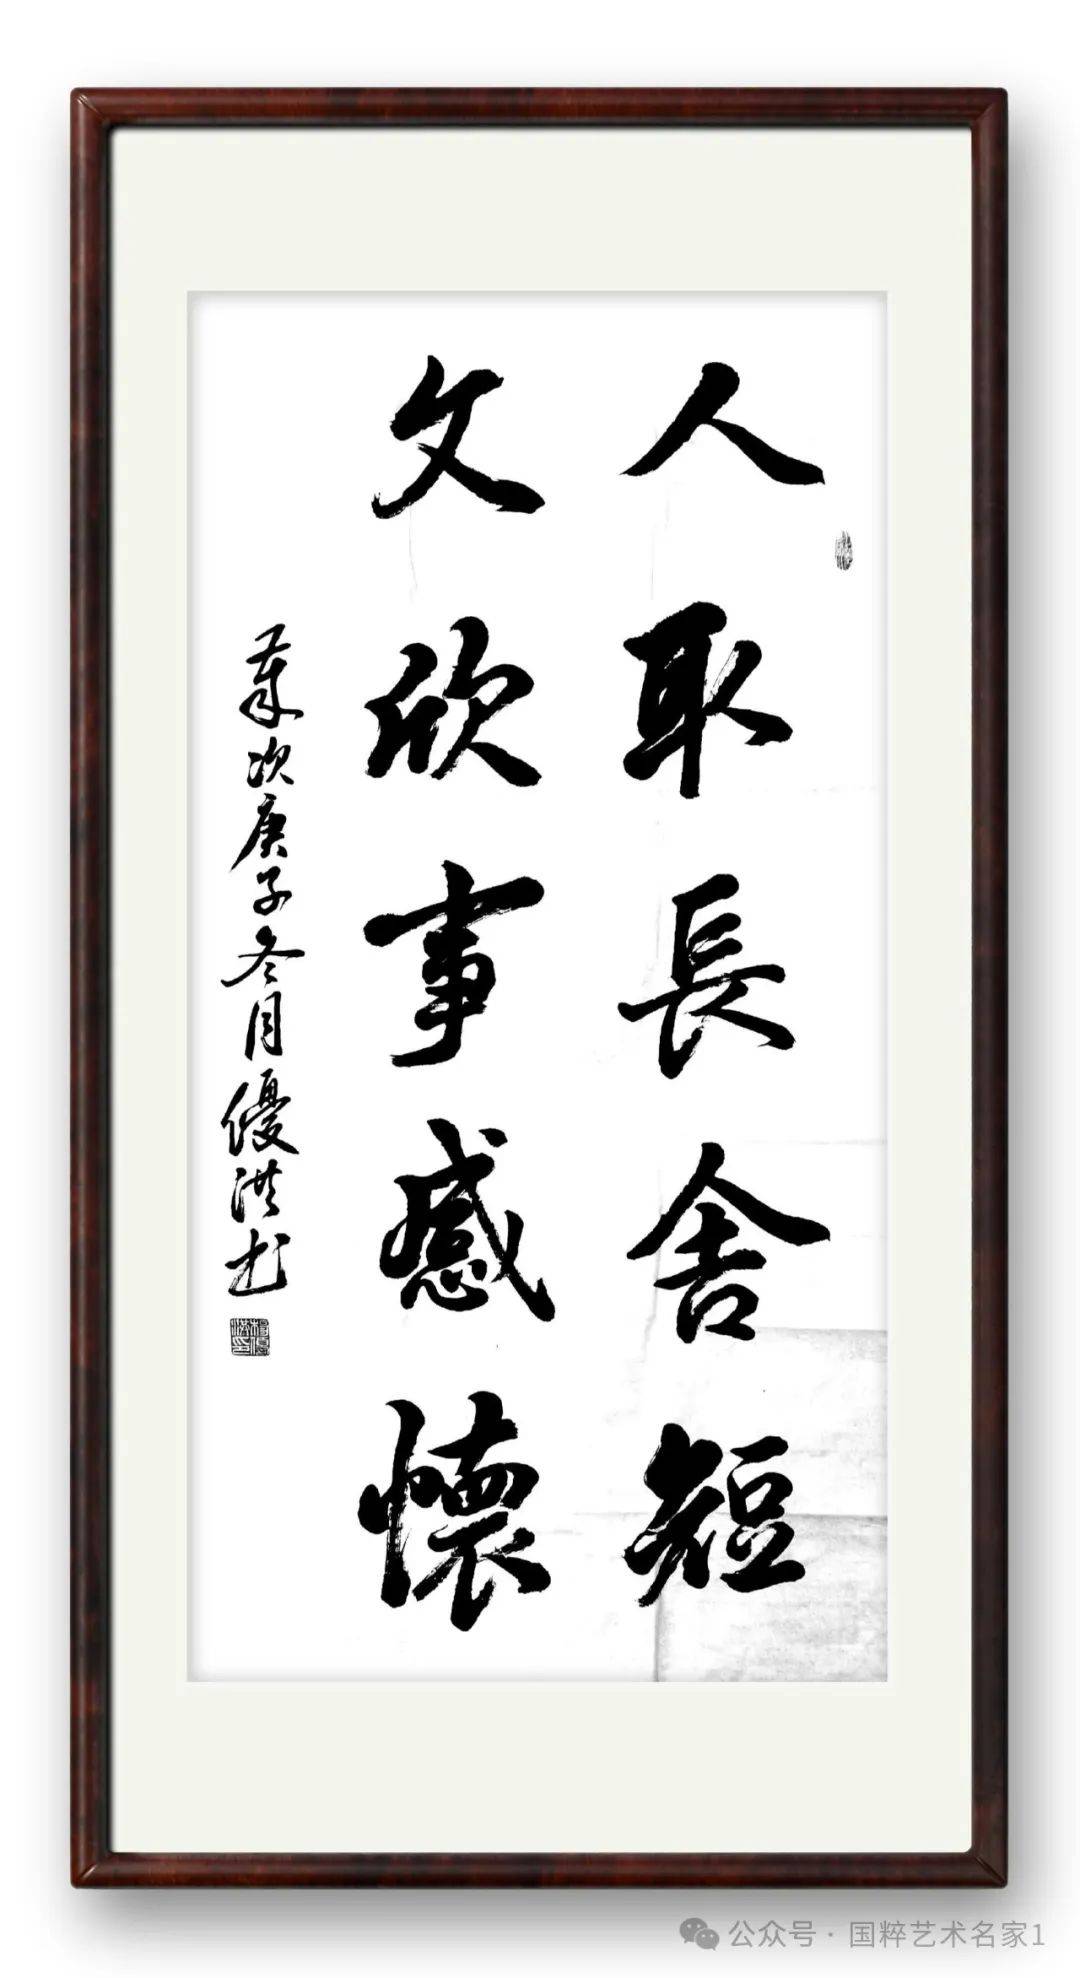 人取長舍短
文欣事感懷
歲次庚子冬月優洪书
公众号 · 国粹艺术名家1